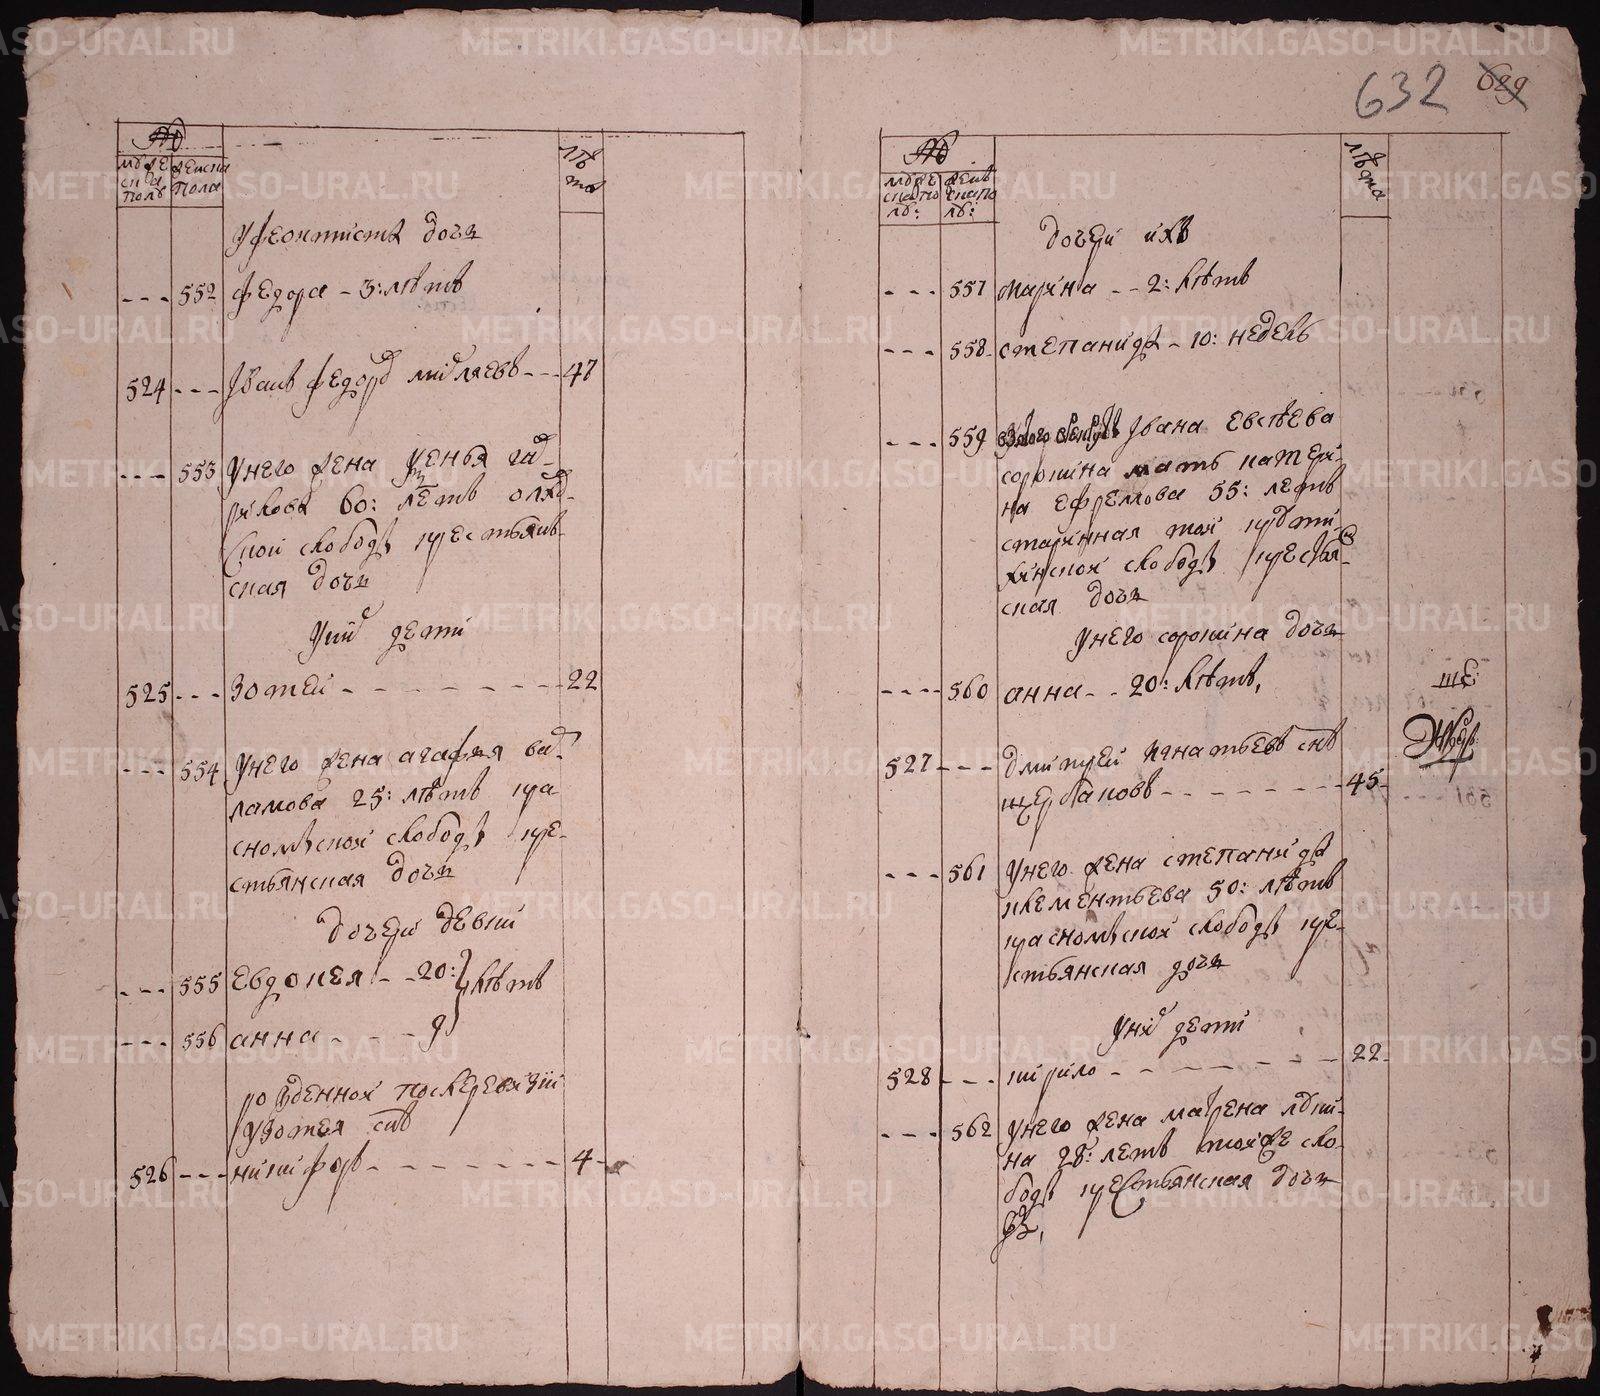 №
мужеска полу
женска пола
лѣта
У Феоктиста дочь
--- 552 Федора - 3: лѣтъ
524 --- Иванъ Федоровъ миляевъ --- 47
--- 553 У него жена
60: летъ
ской слободы крестьян-
ская дочь
У них дети
525 --- Зотей --- 22
--- 554 У него жена агафья вар-
ламова 25: лѣтъ кра
сномыской слободы кре-
стьянская дочь
дочери девки
--- 555 Евдокея -- 20: } лѣтъ
--- 556 анна --- 9
рожденной после ревизии
у Зотея сынъ
526 --- никифоръ --- 4
632 629
№
мужеска полу:
женска полу:
лѣта
дочери ихъ
--- 557 марина -- 2: лѣтъ
--- 558 степанида - 10: недель
--- 559 Ивана Евсѣева
сорокина мать катери-
на Ефремова 55: летъ
старинная той
слободы крестьян-
ская дочь
У него сорокина дочь
--- 560 анна -- 20: лѣтъ,
527 --- дмитрей игнатьевъ сынъ
щербаковъ --- 45
--- 561 У него жена степанида
клементьева 50: лѣтъ
красномыской слободы кре-
стьянская дочь
У них дети
528 --- кирило --- 22
--- 562 У него жена матрена луки-
на 28: летъ той же сло-
боды крестьянская дочь